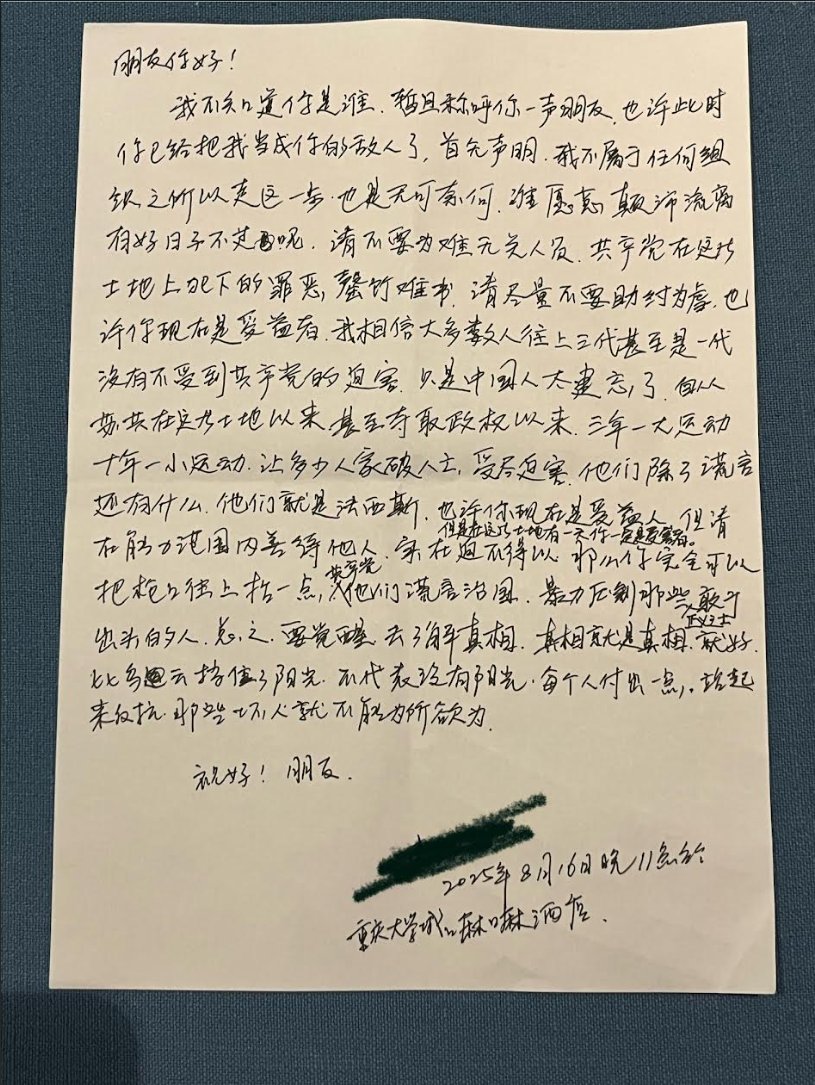 朋友你好！
我不知道你是谁、暂且称呼你一声朋友，也许此时
你已给把我当成你的敌人了，首先声明、我不属于任何组
织之所以走这一步也是无可奈何，谁愿意颠沛流离
有好日子不过呢，请不要为难无关人员、共产党在这片
土地上犯下的罪恶，罄竹难书，请尽量不要助纣为虐，也
许你现在是受益者、我相信大多数人往上三代甚至是一代
没有不受到共产党的迫害、只是中国人太健忘了，自从
共在这片土地以来、甚至夺取政权以来、三年一大运动
十年一小运动、让多少人家破人亡，受尽迫害、他们除了谎言
还有什么、他们就是法西斯、也许你现在是受益人、但请
但是在这片土地有一天你一定是受害者。
在能力范围内善待他人、实在迫不得以、那么你完全可以
把枪口往上抬一点，共产党他们谎言治国、暴力压制那些敢于
人 正义之士
出头的人、总之、要觉醒、去了解真相、真相就是真相、就好
比乌云挡住了阳光、不代表没有阳光、每个人付出一点，站起
来反抗、那些坏人就不能为所欲为、
祝好！朋友、
2025年8月16日晚11点于
重庆大学城 酒店、